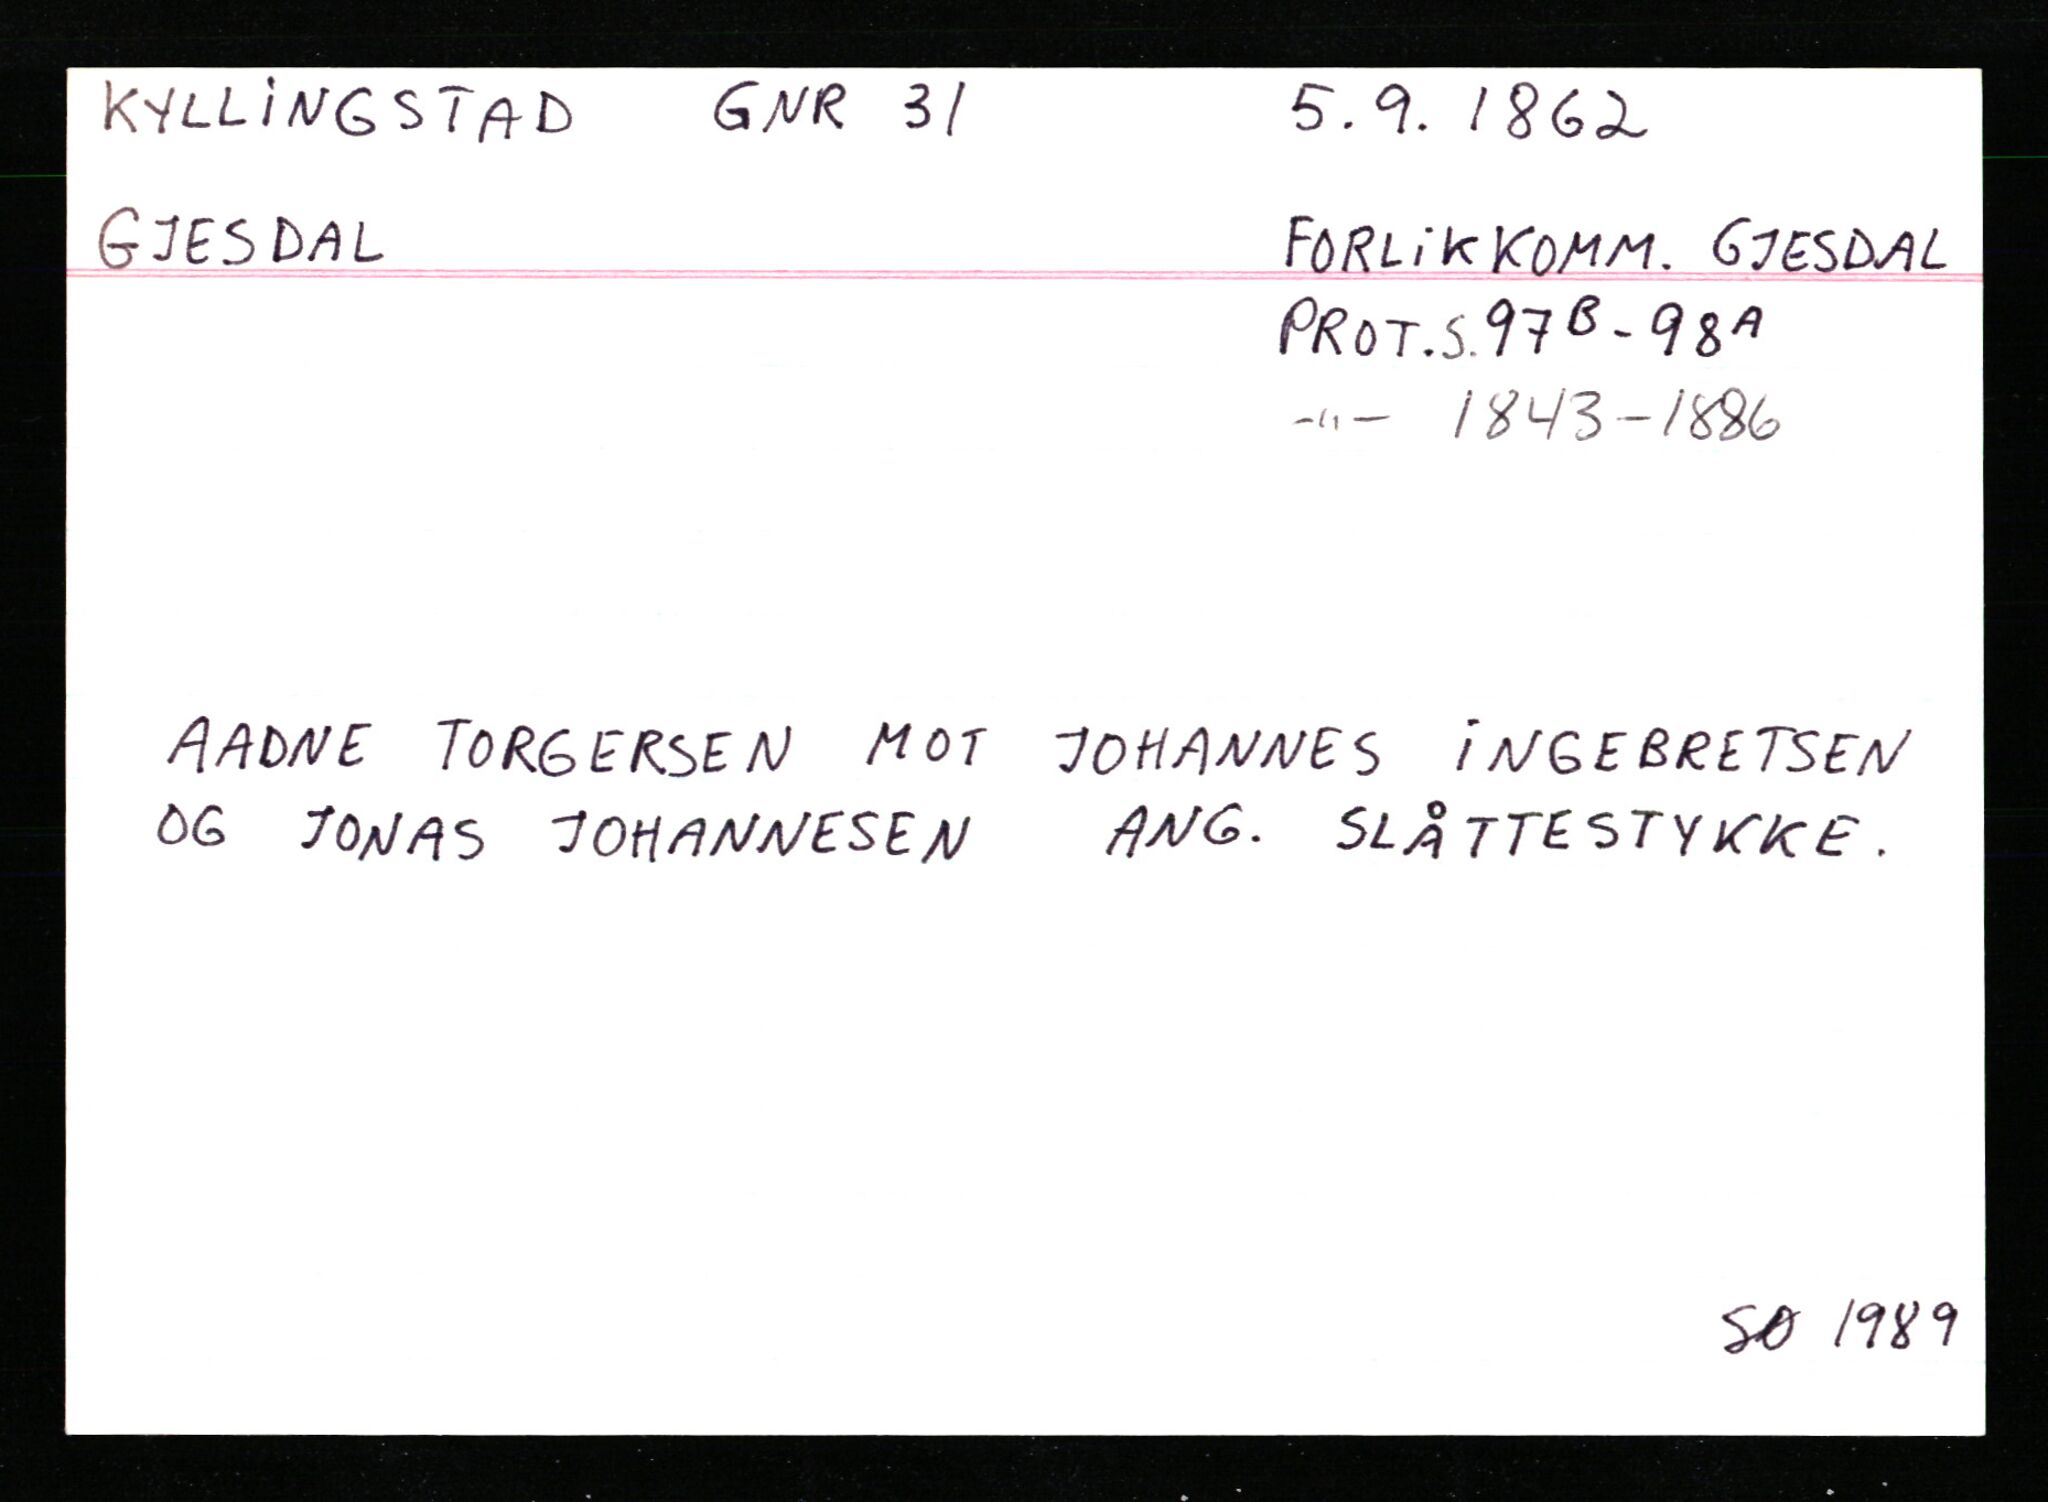 KYLLiNGSTAD GNR 31 5.9.1862
GJESDAL FORLiKKOMM. GJESDAL
PROT.S.97B-98A
-"- 1843-1886
AADNE TORGERSEN MOT JOHANNES iNGEBRETSEN
OG JONAS JOHANNESEN ANG. SLÅTTESTYKKE.
SØ 1989